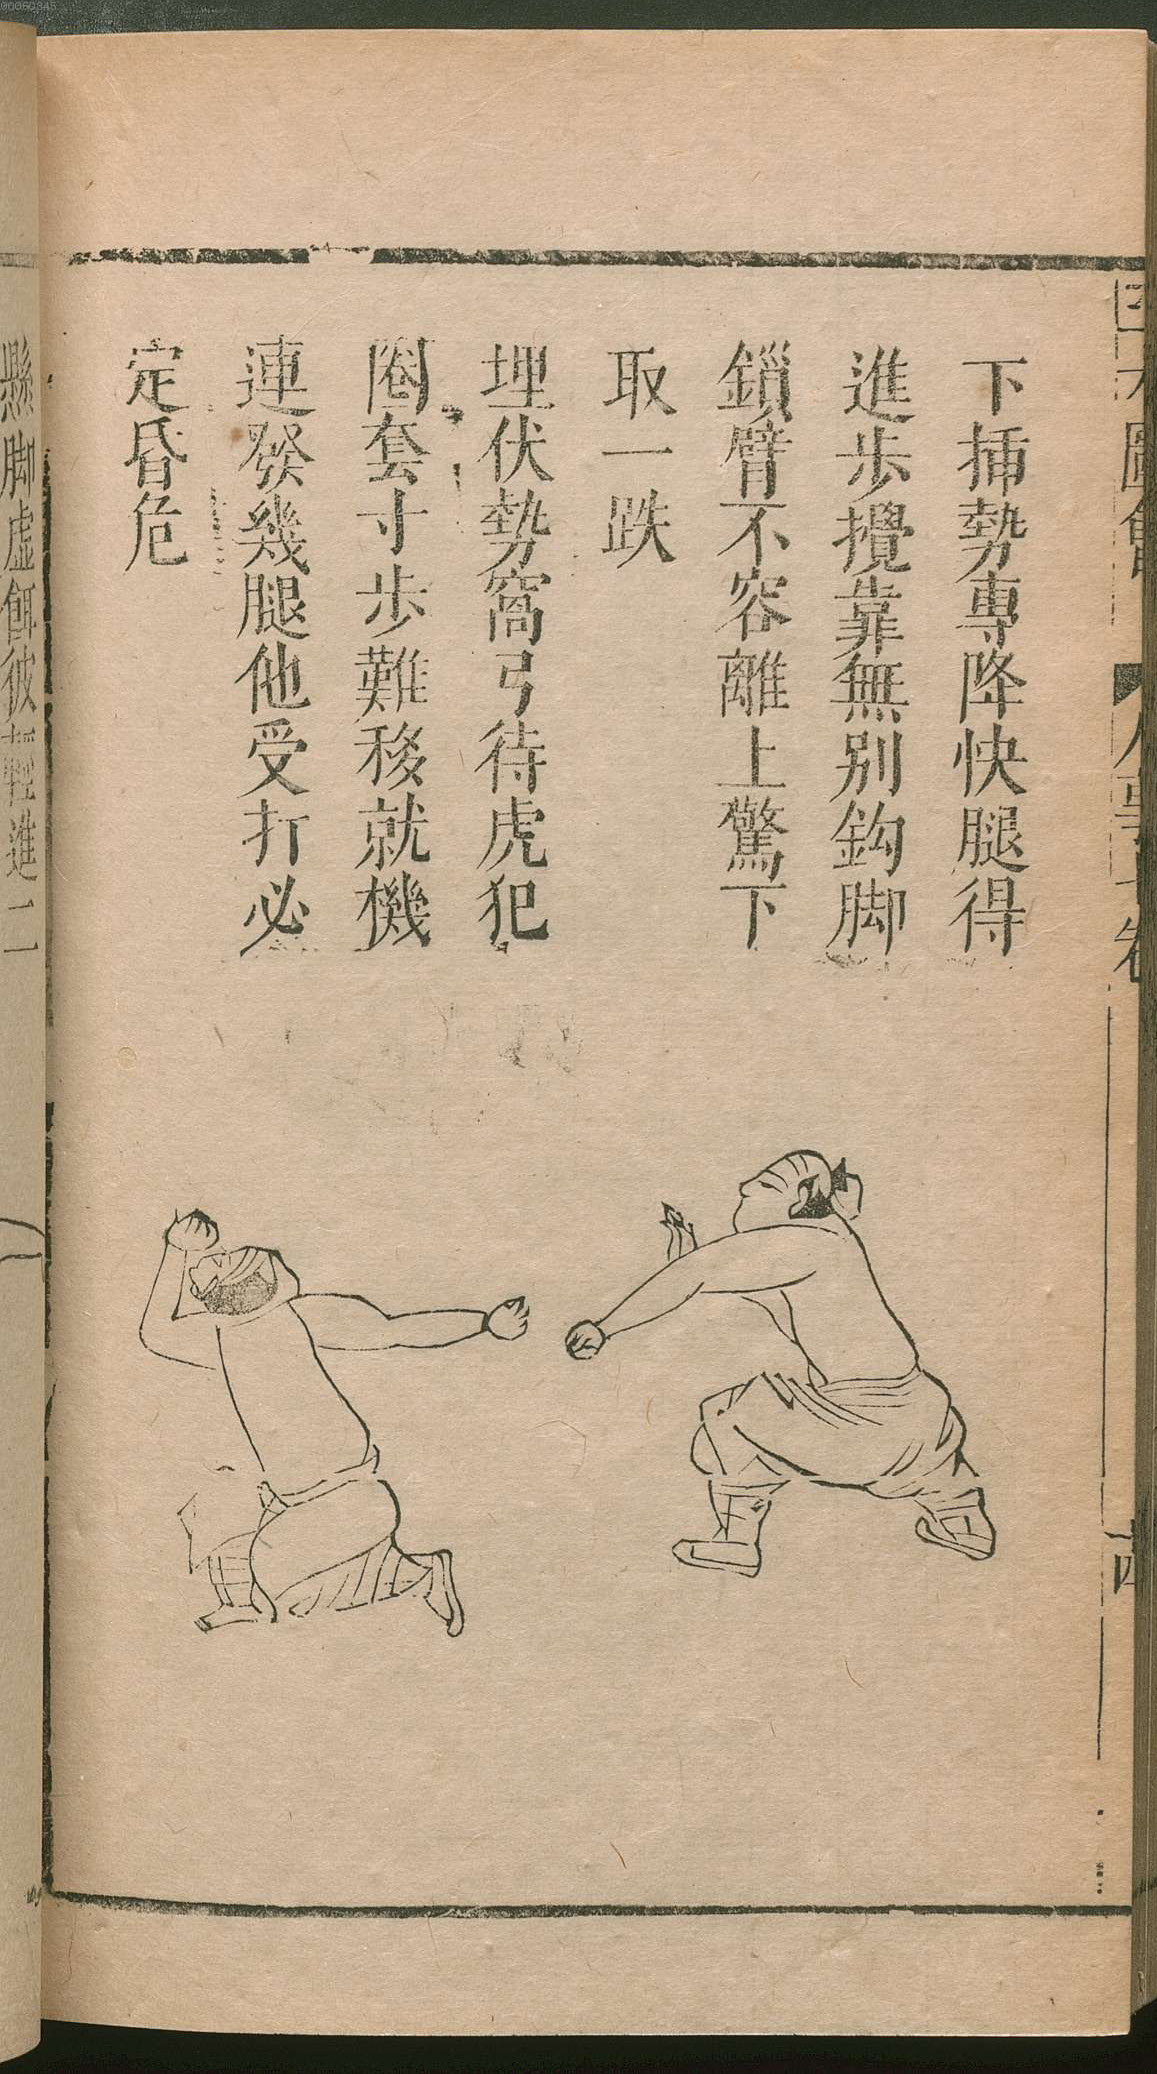 下揷勢專降快腿得
進步攪靠無別鈎脚
鎖臂不容離上驚下
取一跌
埋伏勢窩弓待虎犯
圈套寸步難移就機
連發幾腿他受打必
定昏危
懸脚虛餌彼輕進二
00060345